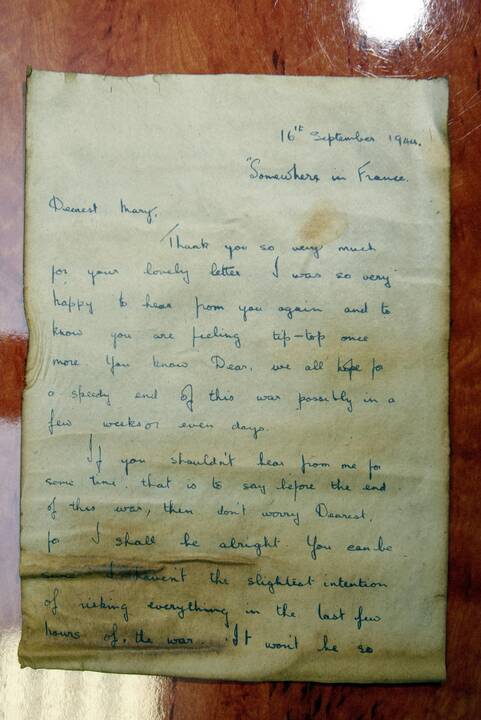 16th September 1944.
"Somewhere in France.
Dearest Mary,
Thank you so very much
for your lovely letter I was so very
happy to hear from you again and to
know you are feeling tip-top once
more You know Dear, we all hope for
a speedy end of this war possibly in a
few weeks or even days.
If you shouldn't hear from me for
some time, that is to say before the end
of this war, then don't worry Dearest,
for I shall be alright You can be
I haven't the slightest intention
of risking everything in the last few
hours of, the war. It won't be so